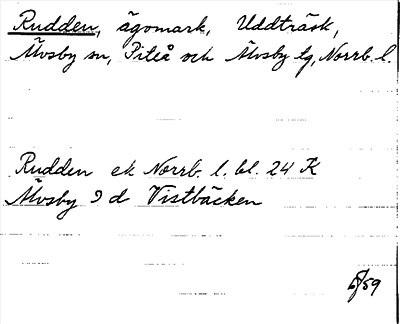 Rudden, ägomark, Uddträsk,
Älvsby sn, Piteå och Älvsby tg, Norrb. l.
Rudden ek Norrb. l. bl. 24 K
Älvsby 9 d Vistbäcken
6/59